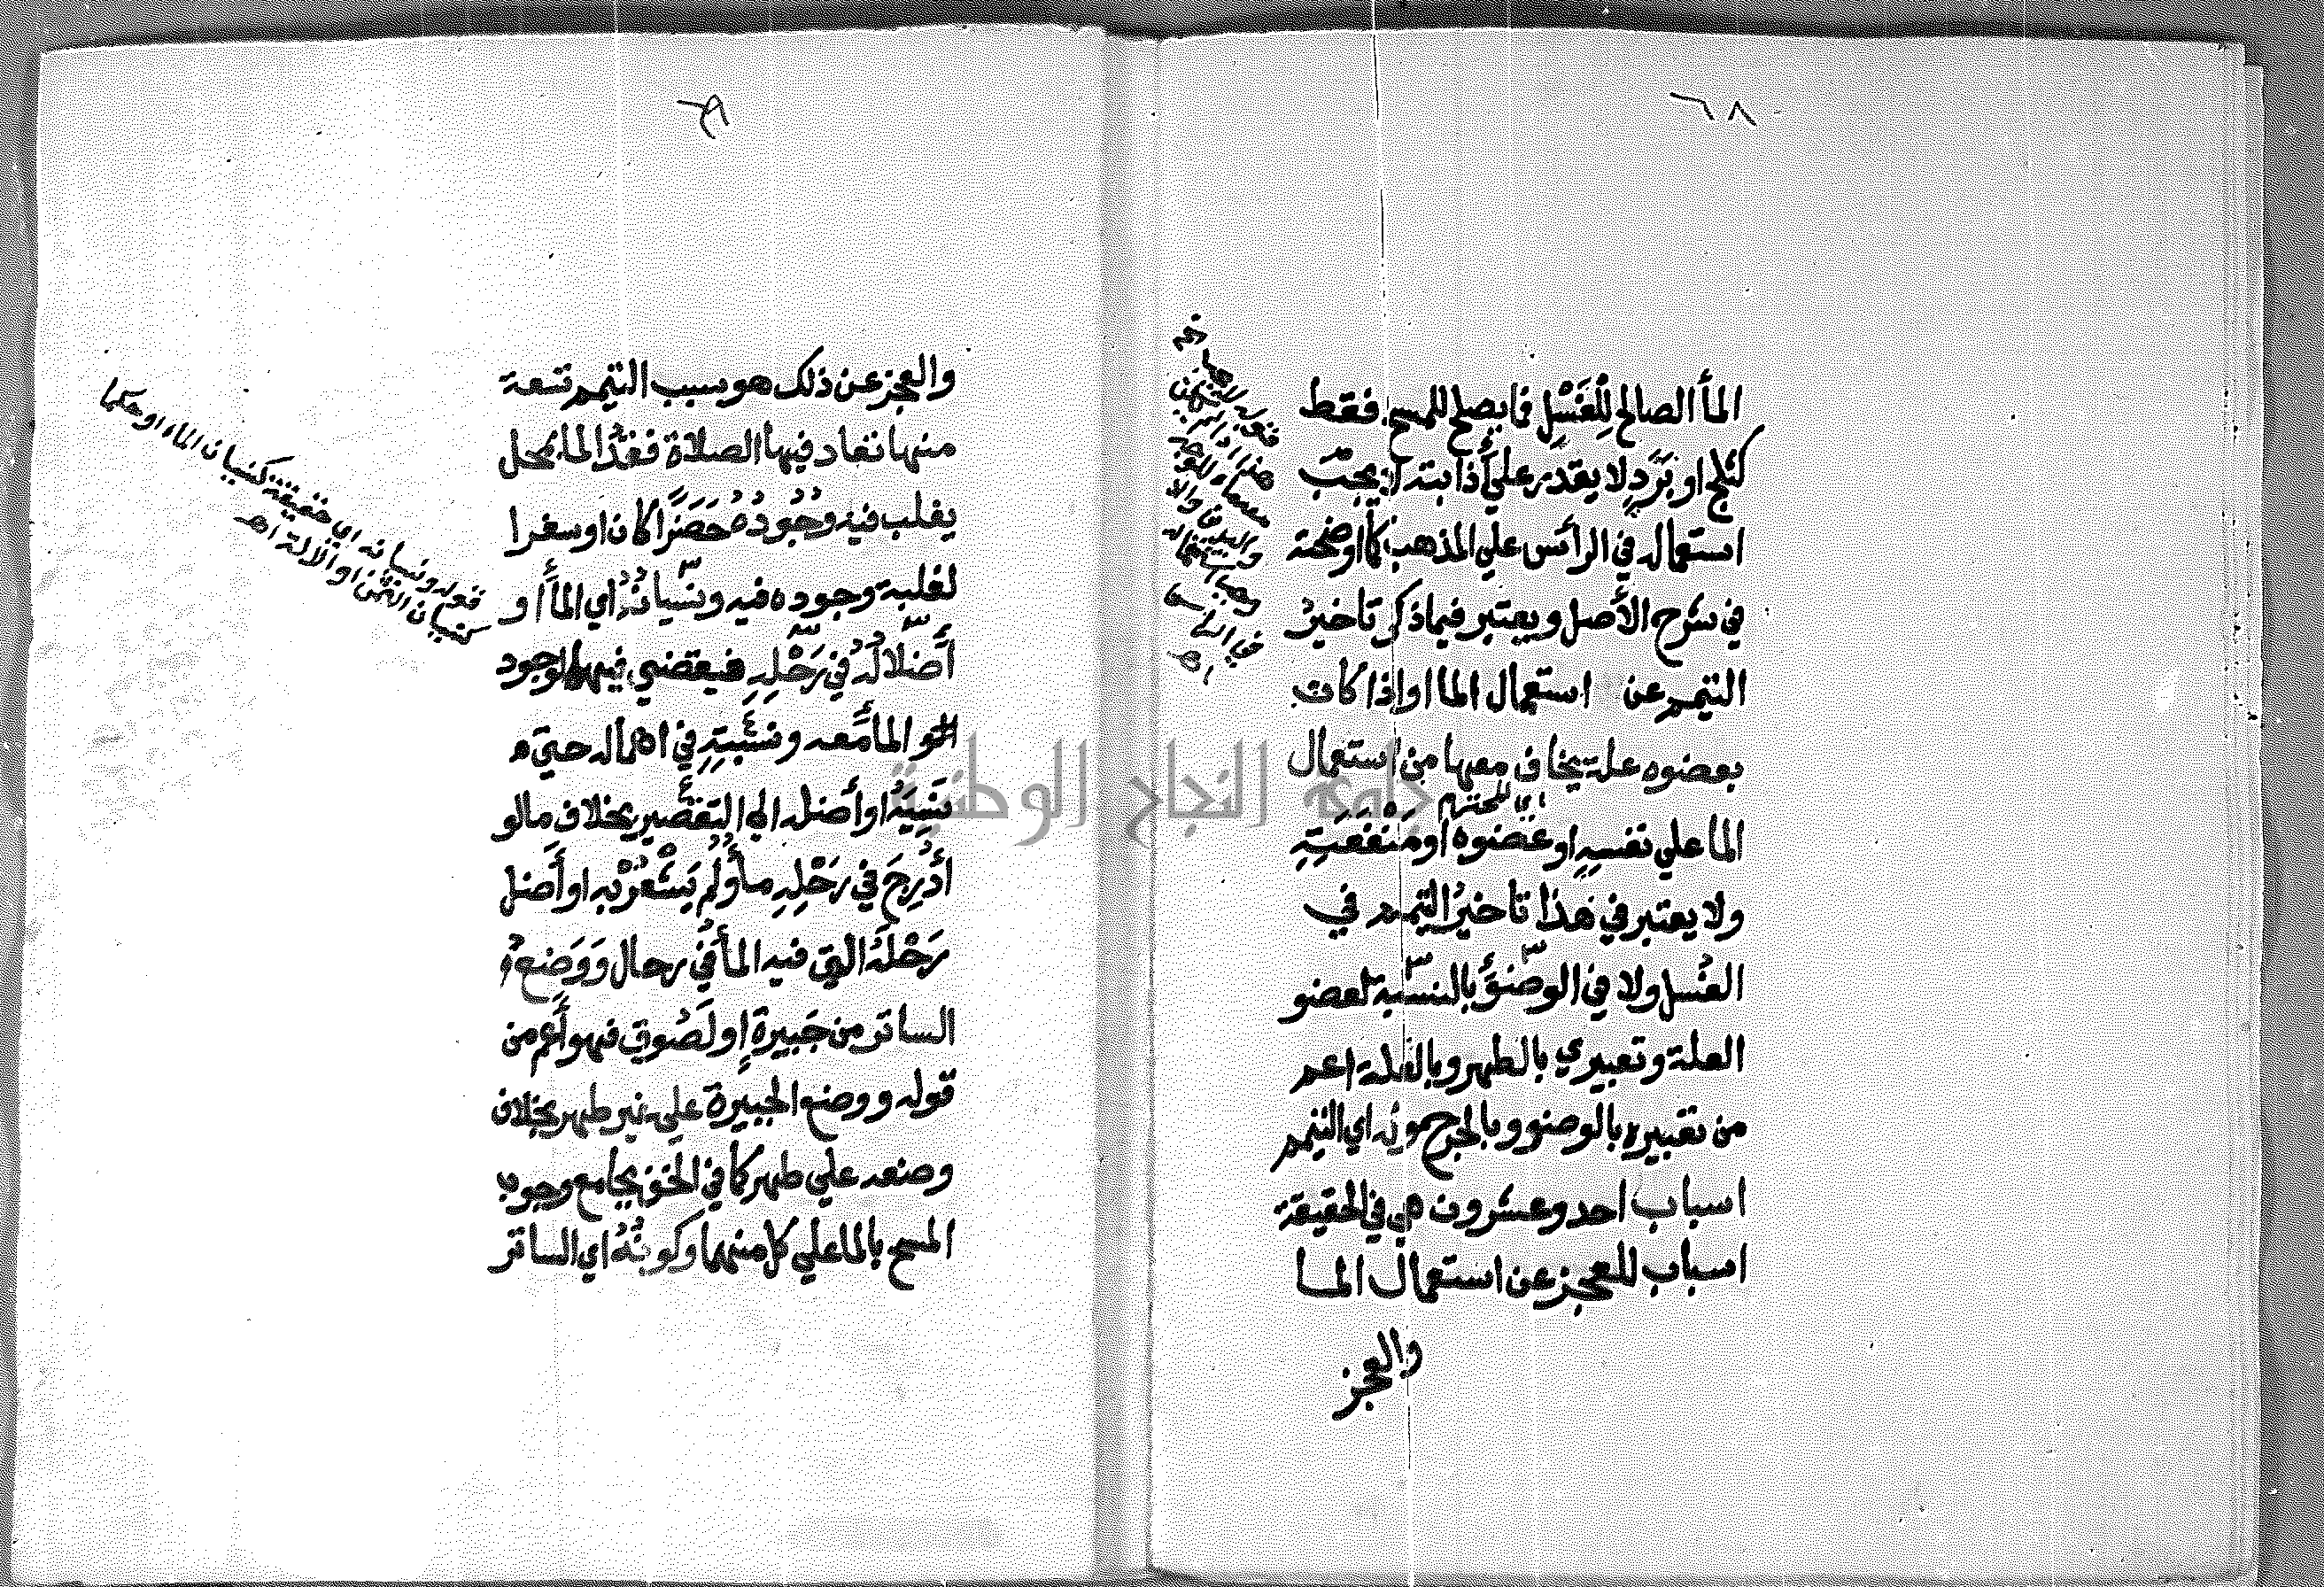 ٦٨
المأ الصالح لِلغَسْلِ فما يصلح للمسح فقط
كثلج او بَرَدٍ لا يقدر علي أذابته لا يجب
استعماله في الرأس علي المذهب كما اوضحته
في شرح الأصل ويعتبر فيما ذكر تاخيرُ
التيمم عن استعمال الما او اذا كانت
بعضوه علة يخاف معها من استعمال
الما علي نفسِهِ او عضوه او مَنْفَعَتِهِ
ولا يعتبر في هذا تاخيرُ التيمم في
الغسل ولا في الوضؤ بالنسبة لعضو
العلة وتعبيري بالطهر وبالعلة اعم
من تعبيره بالوضو وبالجرح وله اي التيمم
اسباب احد وعشرون هي في الحقيقة
اسباب للعجز عن استعمال الما
والعجز
٦٩
والعجز عن ذلك هو سبب التيمم تسعة
منها تعاد فيها الصلاة فقدُ الما بمحل
يغلب فيه وجُودُهُ حَضَرًا كان او سفرا
لغلبة وجوده فيه ونسيانُهُ اي المأ او
أضلالُهُ في رَحْلِهِ فيقضي فيهما لوجود
المأ معه ونسبتِهِ في اهماله حتي
نَسِيَهُ او أضله الي التقصير بخلاف ما لو
أُدْرِجَ في رَحْلِهِ مأ ولم يَشْعُرْ به او أضل
رَحْلَهُ التي فيه المأ في رحال وَوَضْعُ
الساتر من جَبيرة او لَصُوق فهو أعم من
قوله ووضع الجبيرة علي غير طهر بخلاف
وضعه علي طهر كما في الخف بجامع وجوب
المسح بالما علي كل منهما وكونُهُ اي الساتر
قوله ونسيانه اي حقيقة كنسيان الماء او حكما
كنسيان الثمن او الآلة اهـ